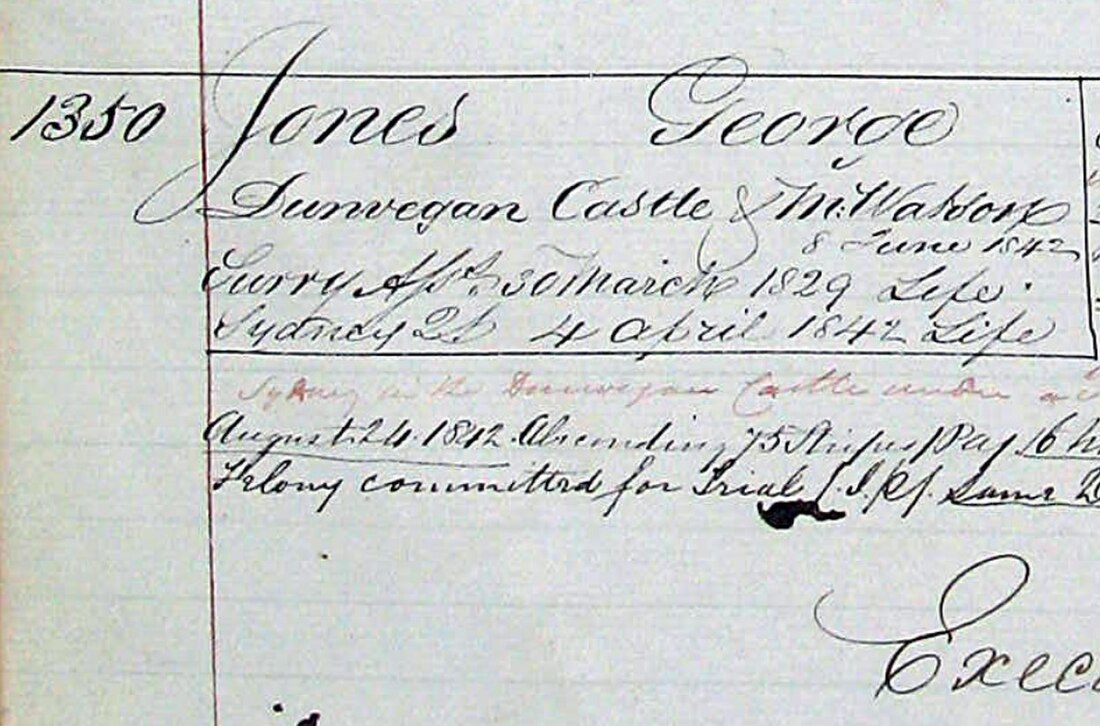 1350 Jones George
Dunvegan Castle & M. Watson
8 June 1842
Surry Ass. 30 March 1829 Life
Sydney QS 4 April 1842 Life
Sydney in the Dunvegan Castle under a
August 24. 1842. Absconding 75 Stripes/Pag. 16
Felony committed for Trial /. Same
Exec